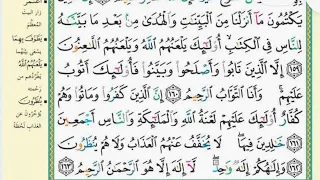 يَكْتُمُونَ مَآ أَنزَلْنَا مِنَ ٱلْبَيِّنَٰتِ وَٱلْهُدَىٰ مِنۢ بَعْدِ مَا بَيَّنَّٰهُ
لِلنَّاسِ فِى ٱلْكِتَٰبِ أُو۟لَٰٓئِكَ يَلْعَنُهُمُ ٱللَّهُ وَيَلْعَنُهُمُ ٱللَّٰعِنُونَ
١٥٩ إِلَّا ٱلَّذِينَ تَابُوا۟ وَأَصْلَحُوا۟ وَبَيَّنُوا۟ فَأُو۟لَٰٓئِكَ أَتُوبُ
عَلَيْهِمْ وَأَنَا ٱلتَّوَّابُ ٱلرَّحِيمُ ١٦٠ إِنَّ ٱلَّذِينَ كَفَرُوا۟ وَمَاتُوا۟ وَهُمْ
كُفَّارٌ أُو۟لَٰٓئِكَ عَلَيْهِمْ لَعْنَةُ ٱللَّهِ وَٱلْمَلَٰٓئِكَةِ وَٱلنَّاسِ أَجْمَعِينَ
١٦١ خَٰلِدِينَ فِيهَا لَا يُخَفَّفُ عَنْهُمُ ٱلْعَذَابُ وَلَا هُمْ يُنظَرُونَ
١٦٢ وَإِلَٰهُكُمْ إِلَٰهٌ وَٰحِدٌ لَّآ إِلَٰهَ إِلَّا هُوَ ٱلرَّحْمَٰنُ ٱلرَّحِيمُ ١٦٣
يَطَّوَّفَ بِهِمَا
يَسْعَى بَيْنَهُمَا
يَلْعَنُهُمُ ٱللَّهُ
يَطْرُدُهُمْ مِنْ
يُنظَرُونَ
يُؤَخَّرُونَ عَنِ
العَذَابِ لَحْظَةً